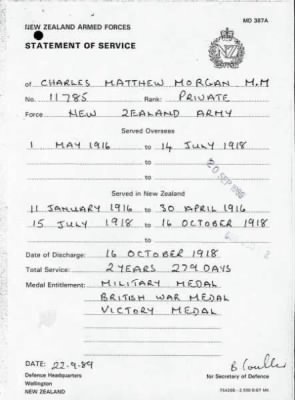 MD 387A
NEW ZEALAND ARMED FORCES
STATEMENT OF SERVICE
of CHARLES MATTHEW MORGAN M.M
No. 11785 Rank: PRIVATE
Force NEW ZEALAND ARMY
Served Overseas
1 MAY 1916 to 14 JULY 1918
to
to
Served in New Zealand
11 JANUARY 1916 to 30 APRIL 1916
15 JULY 1918 to 16 OCTOBER 1918
to
Date of Discharge: 16 OCTOBER 1918
Total Service: 2 YEARS 279 DAYS
Medal Entitlement: MILITARY MEDAL
BRITISH WAR MEDAL
VICTORY MEDAL
DATE: 22-9-89
Defence Headquarters for Secretary of Defence
Wellington
NEW ZEALAND